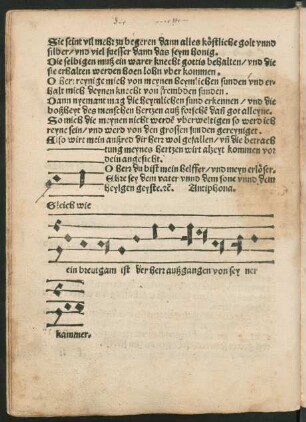 Sie seint vil mehr zu begeren dann alles köstliche golt vnnd
silber/ vnd viel suesser dann das seyn honig.
Die selbigen muß ein warer knecht gottis behalten/ vnd die
sie erhalten werden den lohn vber kommen.
O herr reynige mich von meynen heymlichen sunden vnd er-
halt mich deynen knecht von frembdden sunden.
Dann nyemant mag die heymlichen sund erkennen/ vnd die
boßheyt des menschen hertzen auß forsche dañ got alleyne.
So mich die meynen nicht werdē vberweltigen so werd ich
reyne sein/ vnd werd von den grossen sunden gereyniget.
Also wirt mein außred dir herr wol gefallen/ vñ die betrach
tung meynes hertzen wirt alzeyt kommen vor
dein angesicht.
O herr du bist mein helffer/ vnd meyn erlöser.
Ehre sey dem vater vnnd dem sone vnnd dem
heylgen geyste.rc. Antiphona.
Gleich wie
ein breutgam ist der herr außgangen von sey ner
kammer.